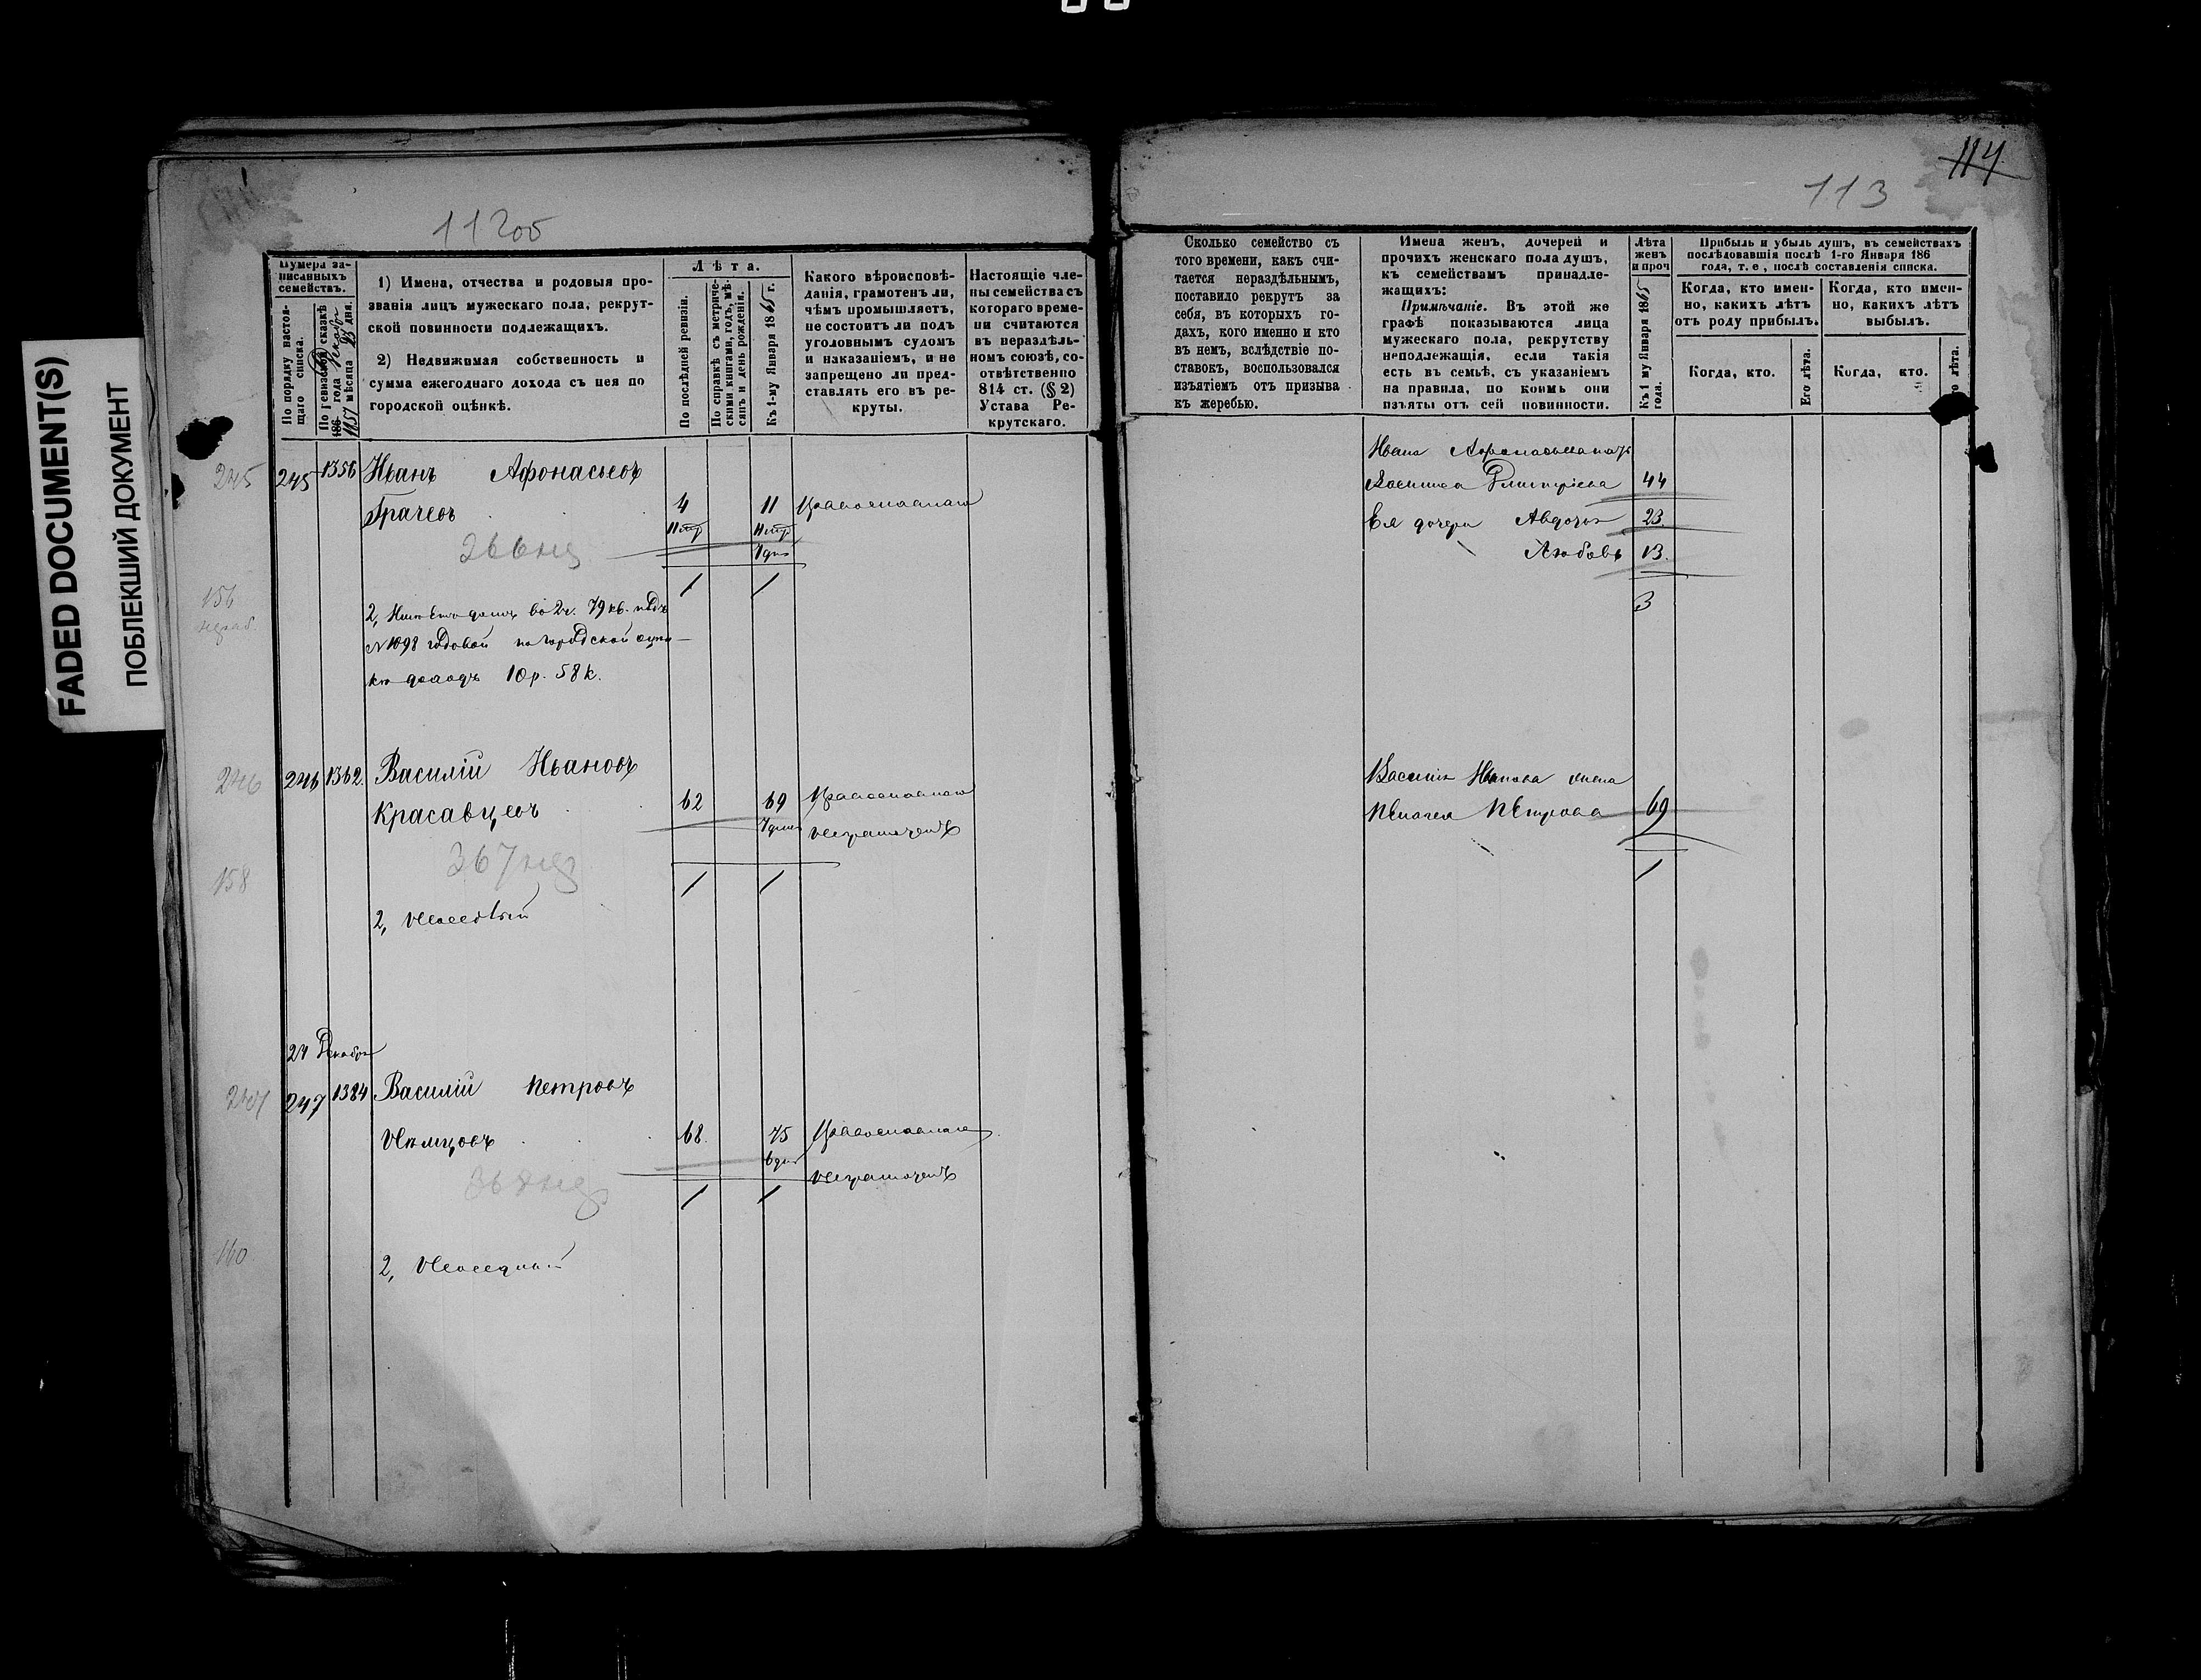 FADED DOCUMENT(S)
ПОБЛЕКШИЙ ДОКУМЕНТ
112об
Нумера за-
писанныхъ
семействъ.
По порядку настоя-
щаго списка.
По Ревизской сказкѣ
186 года Декабря
1857 мѣсяца 23 дня.
1) Имена, отчества и родовыя про-
званія лицъ мужескаго пола, рекрут-
ской повинности подлежащихъ.
2) Недвижимая собственность и
сумма ежегоднаго дохода съ нея по
городской оцѣнкѣ.
Лѣта.
По послѣдней ревизіи.
По справкѣ съ метриче-
скими книгами, годъ, мѣ-
сяцъ и день рожденія.
Къ 1-му Января 1865 г.
Какого вѣроисповѣ-
данія, грамотенъ ли,
чѣмъ промышляетъ,
не состоитъ ли подъ
уголовнымъ судомъ
и наказаніемъ, и не
запрещено ли пред-
ставлять его въ ре-
круты.
Настоящіе чле-
ны семейства съ
котораго време-
ни считаются
въ нераздѣль-
номъ союзѣ, со-
отвѣтственно
814 ст. (§ 2)
Устава Ре-
крутскаго.
245 245 1356 Иванъ Афонасьевъ
Грачевъ 4 11 Православнаго
11 мѣс 11 мѣс
7 дня
1 1
156
2, Имѣетъ домъ во 2 ч. 79 кв. подъ
№ 1098 годовой по городской оцѣн-
кѣ доходъ 10 р. 58 к.
246 246 1362. Василій Ивановъ
Красавцевъ 62 69 Православнаго
7 дней неграмотенъ
367
158 1 1
2, Неоседлый
24 Декабря
247 247 1384 Василій Петровъ
Нѣмцовъ 68. 75 Православнаго
6 дней неграмотенъ
1 1
160
2, Неоседлый
114
113
Сколько семейство съ
того времени, какъ счи-
тается нераздѣльнымъ,
поставило рекрутъ за
себя, въ которыхъ го-
дахъ, кого именно и кто
въ немъ, вслѣдствіе по-
ставокъ, воспользовался
изъятіемъ отъ призыва
къ жеребью.
Имена женъ, дочерей и
прочихъ женскаго пола душъ,
къ семействамъ принадле-
жащихъ:
Примѣчаніе. Въ этой же
графѣ показываются лица
мужескаго пола, рекрутству
неподлежащія, если такія
есть въ семьѣ, съ указаніемъ
на правила, по коимъ они
изъяты отъ сей повинности.
Лѣта
женъ
и проч
Къ 1 му Января 1865
года.
Прибыль и убыль душъ, въ семействахъ
послѣдовавшія послѣ 1-го Января 186
года, т. е., послѣ составленія списка.
Когда, кто имен-
но, какихъ лѣтъ
отъ роду прибылъ.
Когда, кто имен-
но, какихъ лѣтъ
выбылъ.
Когда, кто.
Его лѣта.
Когда, кто.
го лѣта.
Ивана Афонасьева мать
Василиса Дмитріева 44
Ея дочери Авдотья 23.
Любовь 13.
3
Василія Иванова жена
Пелагея Петрова 69
1